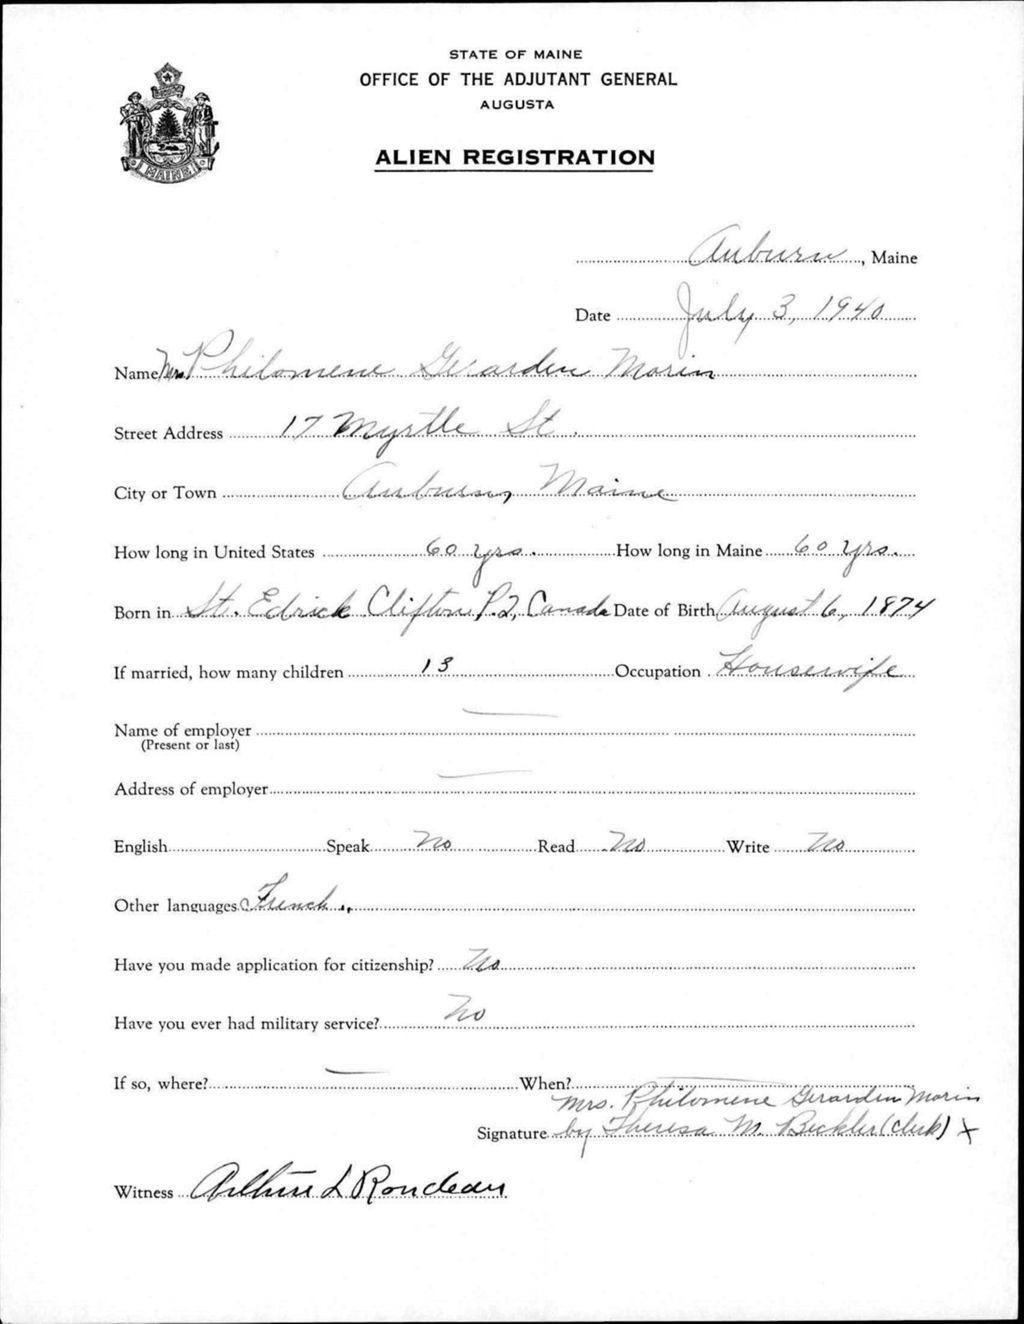 STATE OF MAINE
OFFICE OF THE ADJUTANT GENERAL
AUGUSTA
ALIEN REGISTRATION
MAINE
Auburn, Maine
Date July 3, 1940
Name Mrs. Philomene Gerarden Morin
Street Address 17 Myrtle St.
City or Town Auburn, Maine
How long in United States 60 yrs. How long in Maine 60 yrs.
Born in St. Edrick Clifton, P.Q, Canada Date of Birth August 6, 1874
If married, how many children 13 Occupation Housewife
Name of employer —
(Present or last)
Address of employer —
English Speak No Read No Write No
Other languages French
Have you made application for citizenship? No
Have you ever had military service? No
If so, where? — When? —
Mrs. Philomene Gerarden Morin
Signature by Theresa M. Beckler (clerk) X
Witness Arthur L Rondeau